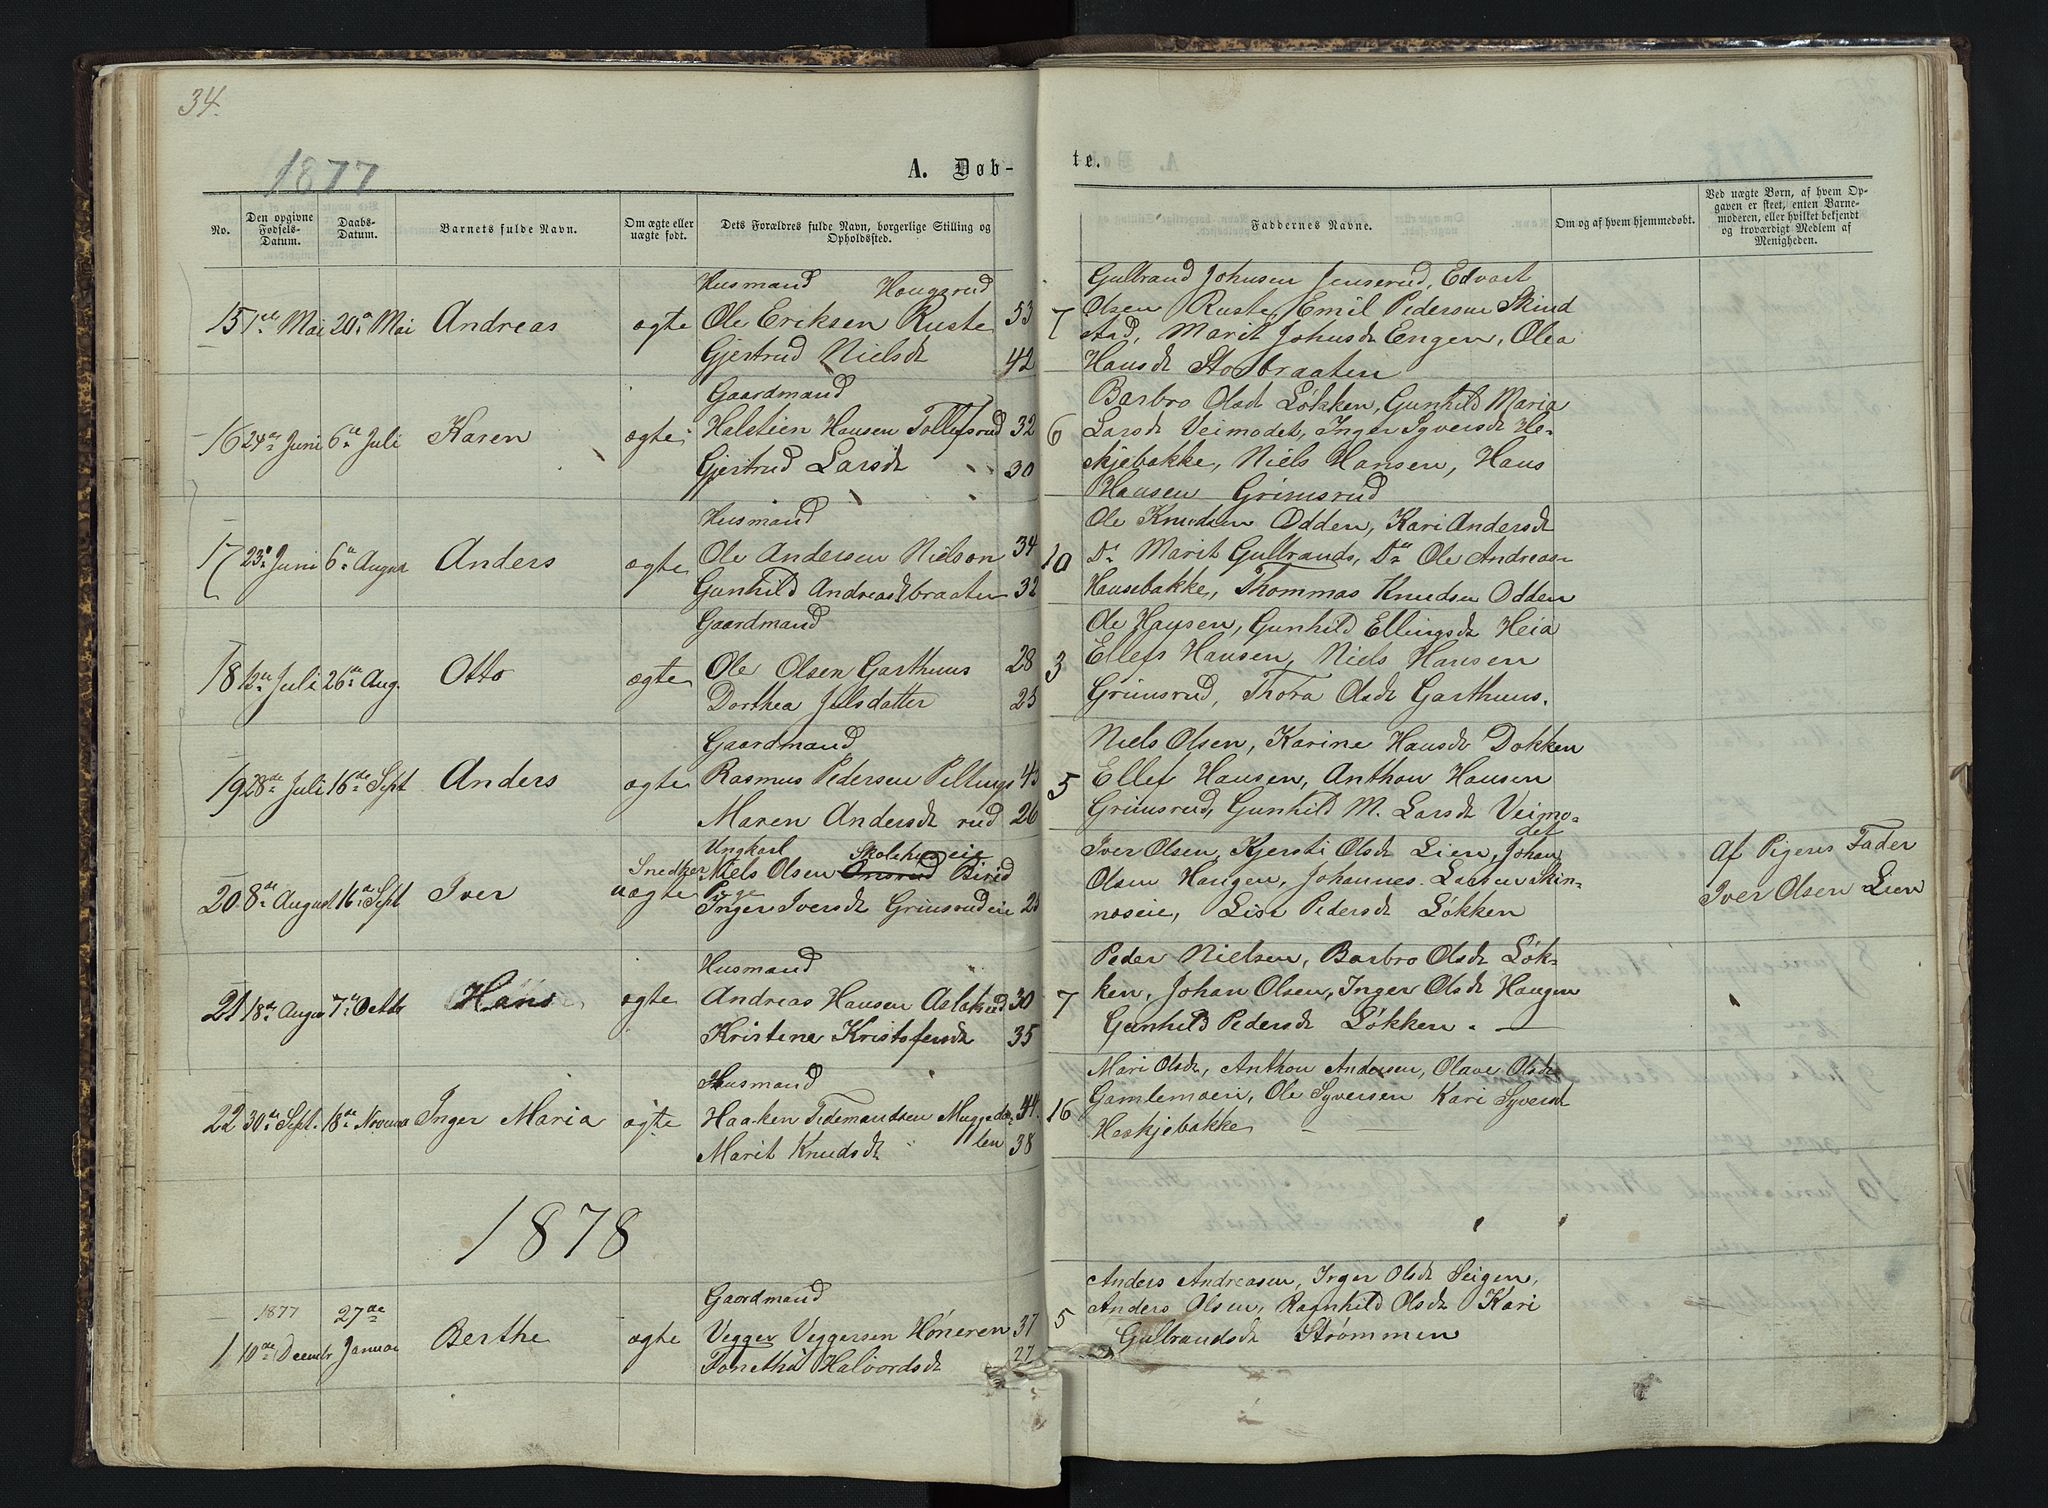 34.
1877
A. Døb-
te.
No.
Den opgivne Fødsels-Datum.
Daabs-Datum.
Barnets fulde Navn.
Om ægte eller uægte født.
Dets Forældres fulde Navn, borgerlige Stilling og Opholdssted.
Faddernes Navne.
Om og af hvem hjemmedøbt.
Ved uægte Børn, af hvem Opgaven er skeet, enten Barnemoderen, eller hvilket bekjendt og troværdigt Medlem af Menigheden.
Husmand Hougerud
15 1ste Mai 20de Mai Andreas ægte Ole Eriksen Ruste 53
Gjertrud Nielsdt 42
7
Gulbrand Johnsen Jenserud, Edvart
Olsen Ruste, Emil Pedersen Skind
stad, Marit Johnsdt Engen, Olea
Hansdt Storbraaten
Gaardmand
16 24de Juni 6te Juli Karen ægte Halstien Hansen Tollefsrud 32
Gjertrud Larsdt 30
6
Barbro Olsdt Løkken, Gunhild Maria
Larsdt Veimodet, Inger Syversdt He-
skjebakke, Niels Hansen, Hans
Hansen Grimsrud
Husmand
17 23de Juni 6te August Anders ægte Ole Andersen Nielson 34
Gunhild Andreasdt braaten 32
10
Ole Knudsen Odden, Kari Andersdt
Do Marit Gulbrands, Do Ole Andreasen
Hansebakke, Thommas Knudsen Odden
Gaardmand
18 13de Juli 26de Aug. Otto ægte Ole Olsen Garthuus 28
Dorthea Julsdatter 25
3
Ole Hansen, Gunhild Ellingsdt Heia
Ellef Hansen, Niels Hansen
Grimsrud, Thora Olsdt Garthuus.
Gaardmand
19 28de Juli 16de Sept Anders ægte Rasmus Pedersen Pellings 45
Maren Andersdt rud 26
5
Niels Olsen, Karine Hansdt Dokken
Ellef Hansen, Anthon Hansen
Grimsrud, Gunhild M. Larsdt Veimo-
det
Ungkarl Skolehuseie
Snedker Niels Olsen Onsrud Birid
20 8de August 16de Sept Iver uægte Pige
Inger Iversdt Grimsrudeie 25
Iver Olsen, Kjersti Olsdt Lien, Johan
Olsen Haugen, Johannes Larsen Skin-
noseie, Lise Pedersdt Løkken
Af Pigens Fader
Iver Olsen Lien
Husmand
21 18de August 7de Octbr Hans ægte Andreas Hansen Aslaksrud 30
Kristine Kristofersdt 35
7
Peder Nielsen, Barbro Olsdt Løk-
ken, Johan Olsen, Inger Olsdt Haugen
Gunhild Pedersdt Løkken. —
Husmand
22 30de Sept. 18de Novemb Inger Maria ægte Haaken Tidemandsen Muggeda- 44
Marit Knudsdt len 38
16
Mari Olsdt, Anthon Andersen, Olave Olsdt
Gamlemoen, Ole Syversen Kari Syversdt
Heskjebakke
1878
Gaardmand
1877
1 10de Decembr 27de Januar Berthe ægte Vegger Veggersen Høneren 37
Tonethe Halvordsdt 27
5
Anders Andreasen, Inger Olsdt Seigen,
Anders Olsen, Ragnhild Olsdt Kari
Gulbrandsdt Strømmen